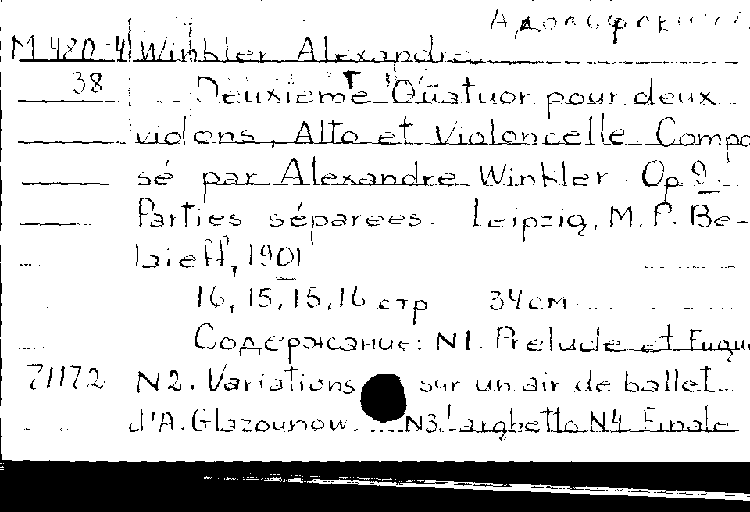 M 480-4 Winkler Alexandre
38 Deuxième Quatuor pour deux
violons, Alto et Violoncelle. Compo
sé par Alexandre Winkler. Op 9.
Parties séparees. Leipzig, M. P. Be-
laieff, 1901
16, 15, 15, 16 стр 34 см
Содержание: N1. Prelude et Fugue
71172 N2. Variations sur un air de ballet
d'A. Glazounow. N3 Larghetto N4 Finale